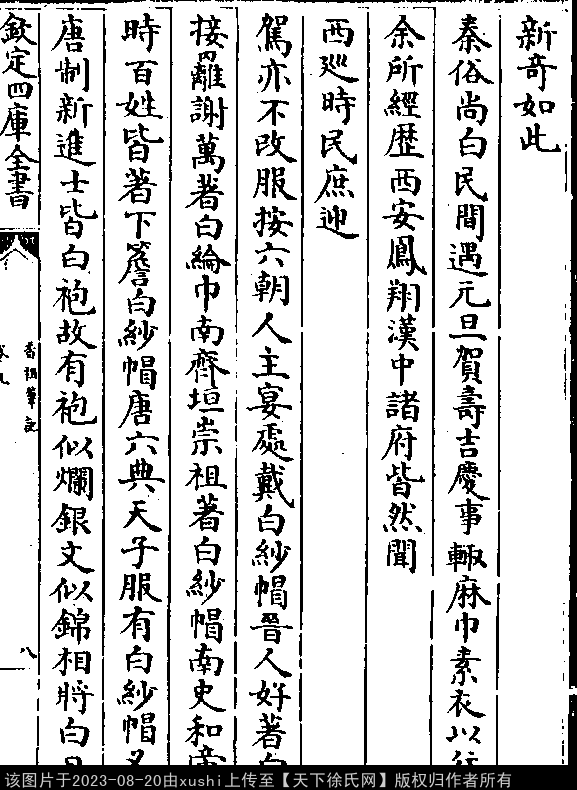 新奇如此
秦俗尚白民間遇元旦賀壽吉慶事輙麻巾素衣以往
余所經歴西安鳳翔漢中諸府皆然聞
西廵時民庶迎
駕亦不改服按六朝人主宴處戴白紗帽晉人好著白
接䍦謝萬著白綸巾南齊垣崇祖著白紗帽南史和帝
時百姓皆著下簷白紗帽唐六典天子服有白紗帽又
唐制新進士皆白袍故有袍似爛銀文似錦相將白日
欽定四庫全書
香祖筆記
卷九
八
该图片于2023-08-20由xushi上传至【天下徐氏网】版权归作者所有